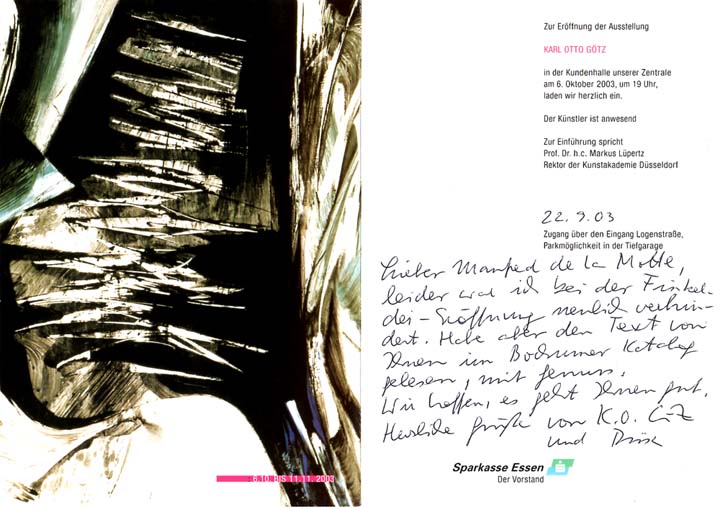 6.10. BIS 11.11. 2003
Zur Eröffnung der Ausstellung
KARL OTTO GÖTZ
in der Kundenhalle unserer Zentrale
am 6. Oktober 2003, um 19 Uhr,
laden wir herzlich ein.
Der Künstler ist anwesend
Zur Einführung spricht
Prof. Dr. h.c. Markus Lüpertz
Rektor der Kunstakademie Düsseldorf
22.9.03
Zugang über den Eingang Logenstraße,
Parkmöglichkeit in der Tiefgarage
Lieber Manfred de la Motte,
leider war ich bei der Finkel-
dei-Eröffnung neulich verhin-
dert. Habe aber den Text von
Ihnen im Bochumer Katalog
gelesen, mit Genuss.
Wir hoffen, es geht Ihnen gut.
Herzliche Grüße von K.O. Götz
und
Sparkasse Essen
Der Vorstand